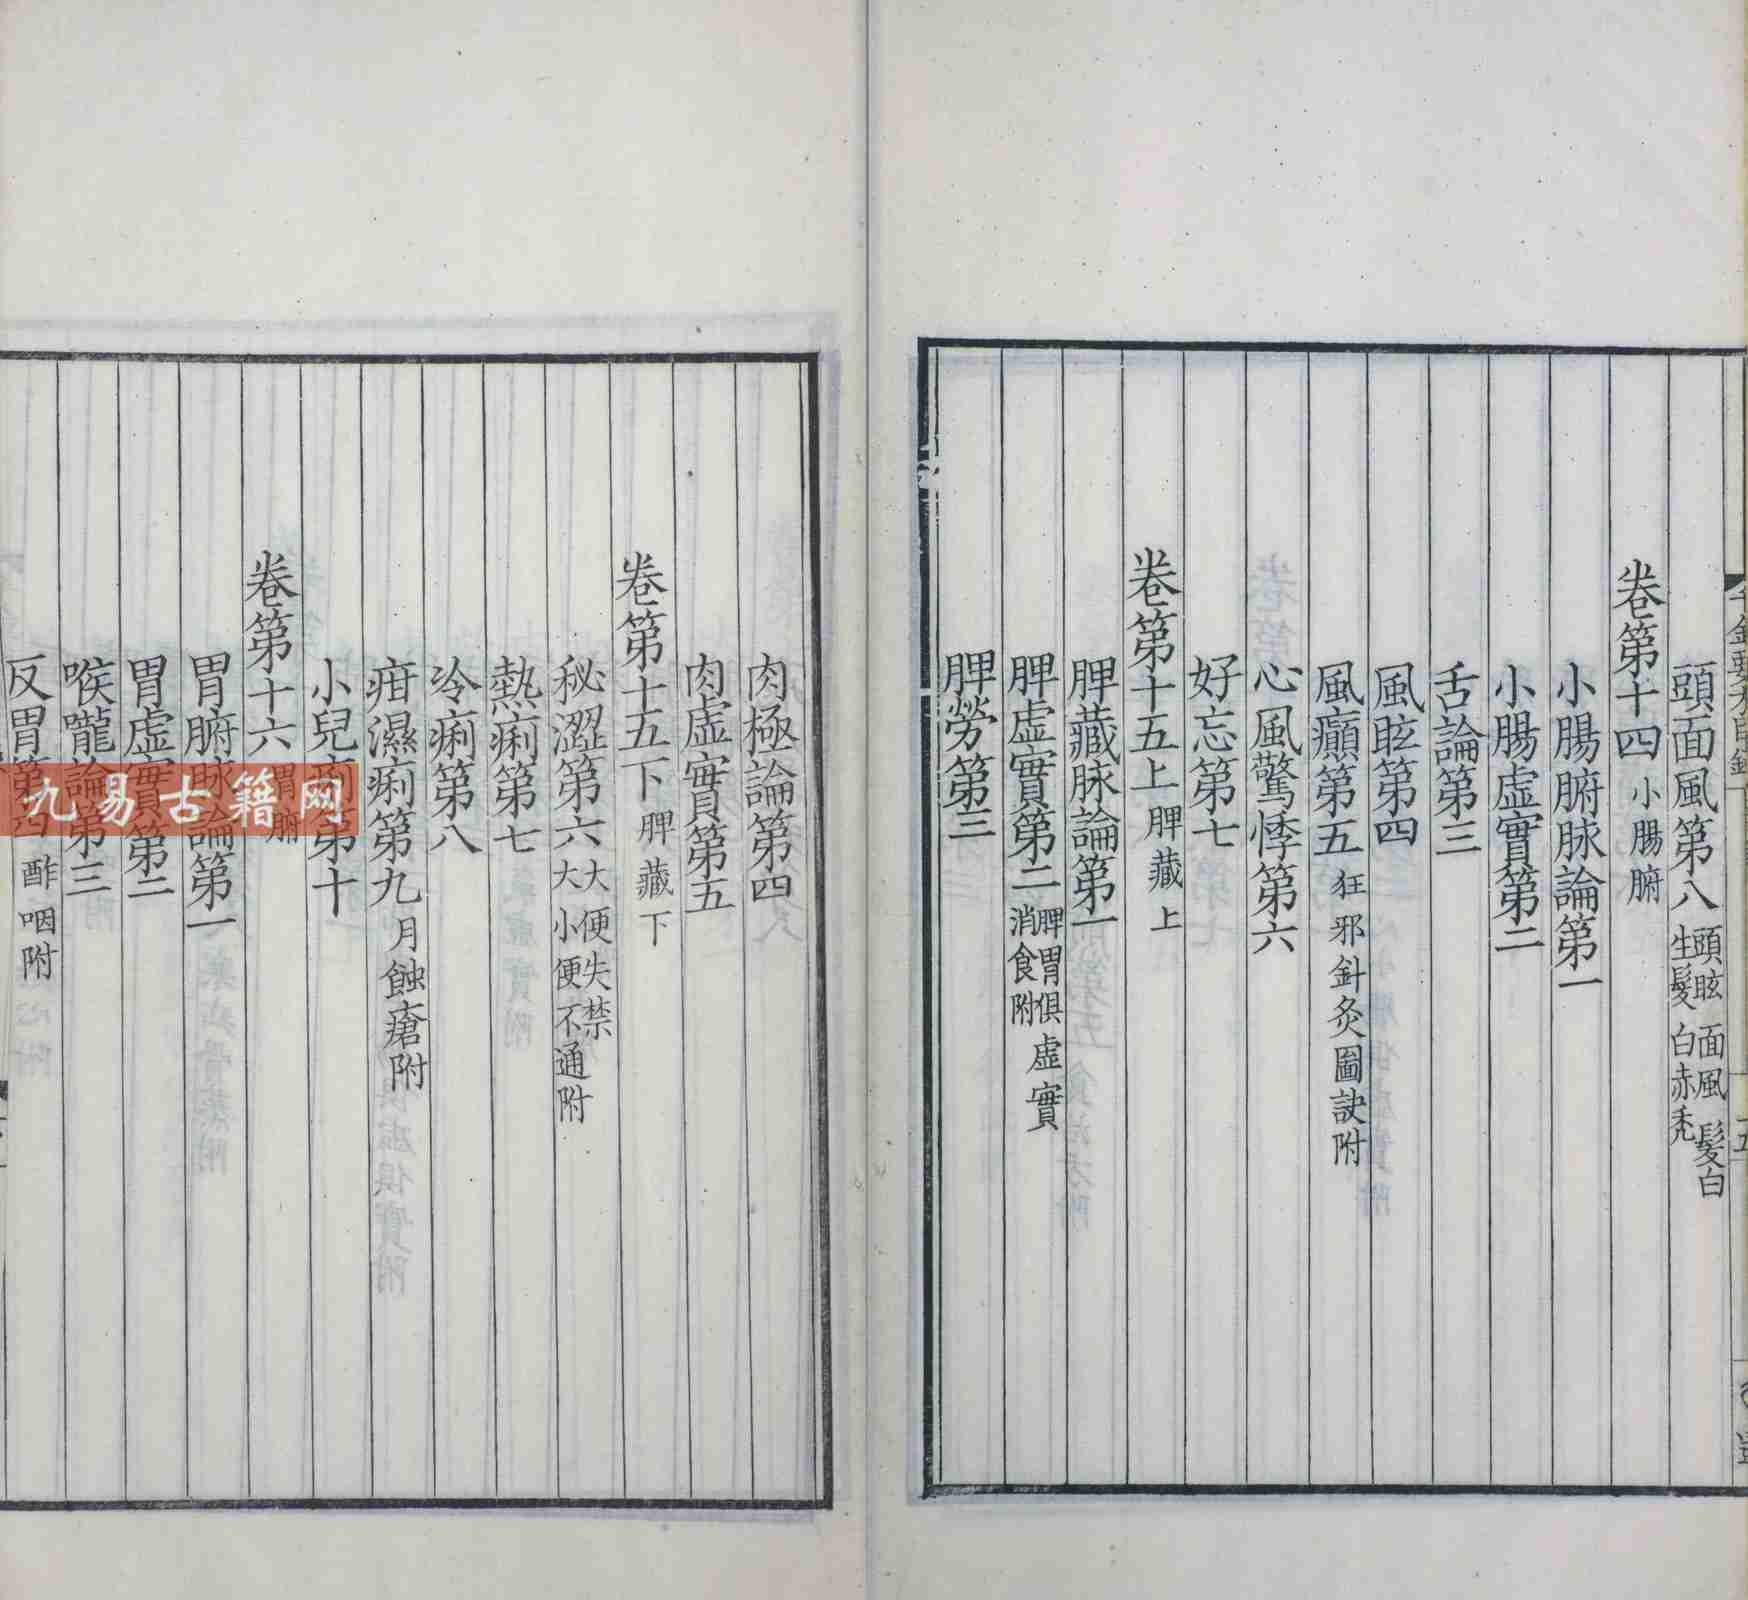 頭面風第八 頭眩 面風 髮白 生髮 白赤禿
卷第十四 小腸腑
小腸腑脉論第一
小腸虛實第二
舌論第三
風眩第四
風癲第五 狂邪針灸圖訣附
心風驚悸第六
好忘第七
卷第十五上 脾藏上
脾藏脉論第一
脾虛實第二 脾胃俱虛實 消食附
脾勞第三
肉極論第四
肉虛實第五
卷第十五下 脾藏下
秘澀第六 大便失禁 大小便不通附
熱痢第七
冷痢第八
疳濕痢第九 月蝕瘡附
小兒痢第十
卷第十六 胃腑
胃腑脉論第一
胃虛實第二
喉嚨論第三
反胃第四 酢咽附
九易古籍网